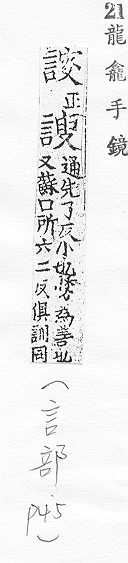 21 龍龕手鏡
正
謏
通先了反小也為善也
又蘇口所六二反俱訓同
(言部 P45)